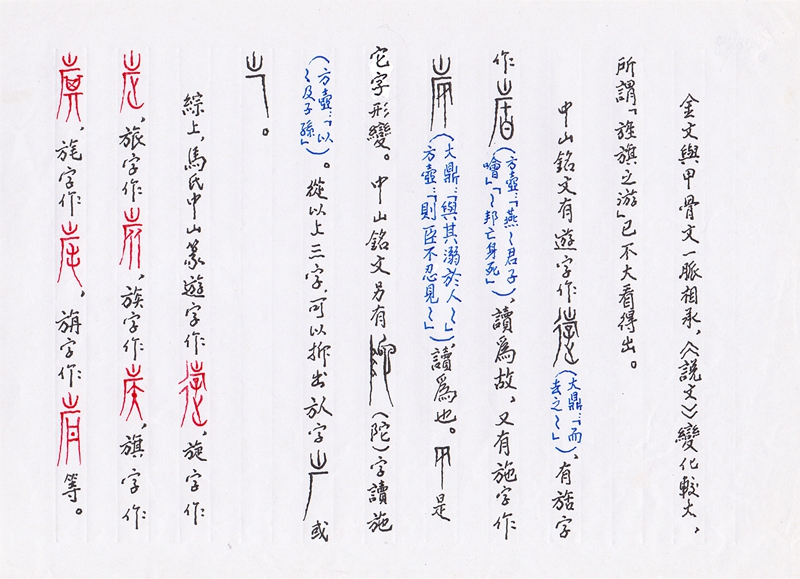 金文與甲骨文一脈相承，《說文》變化較大，
所謂「旌旗之游」已不大看得出。
中山銘文有遊字作（大鼎：「而去之～」），有字
作（方壺：「燕～君子噲」「～邦亡身死」），讀爲故，又有施字作
（大鼎：「與其溺於人～」，方壺：「則臣不忍見～」），讀爲也。是
它字形變。中山銘文另有（陀）字讀施
（方壺：「以～及子孫」）。從以上三字，可以抑出㫃字或
。
綜上，馬氏中山篆遊字作，施字作
，旅字作，族字作，旗字作
，旄字作，旃字作等。